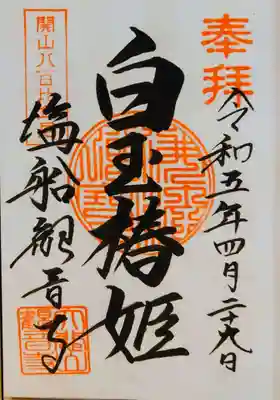 奉拝
令和五年四月二十九日
白玉椿姫
塩船観音寺